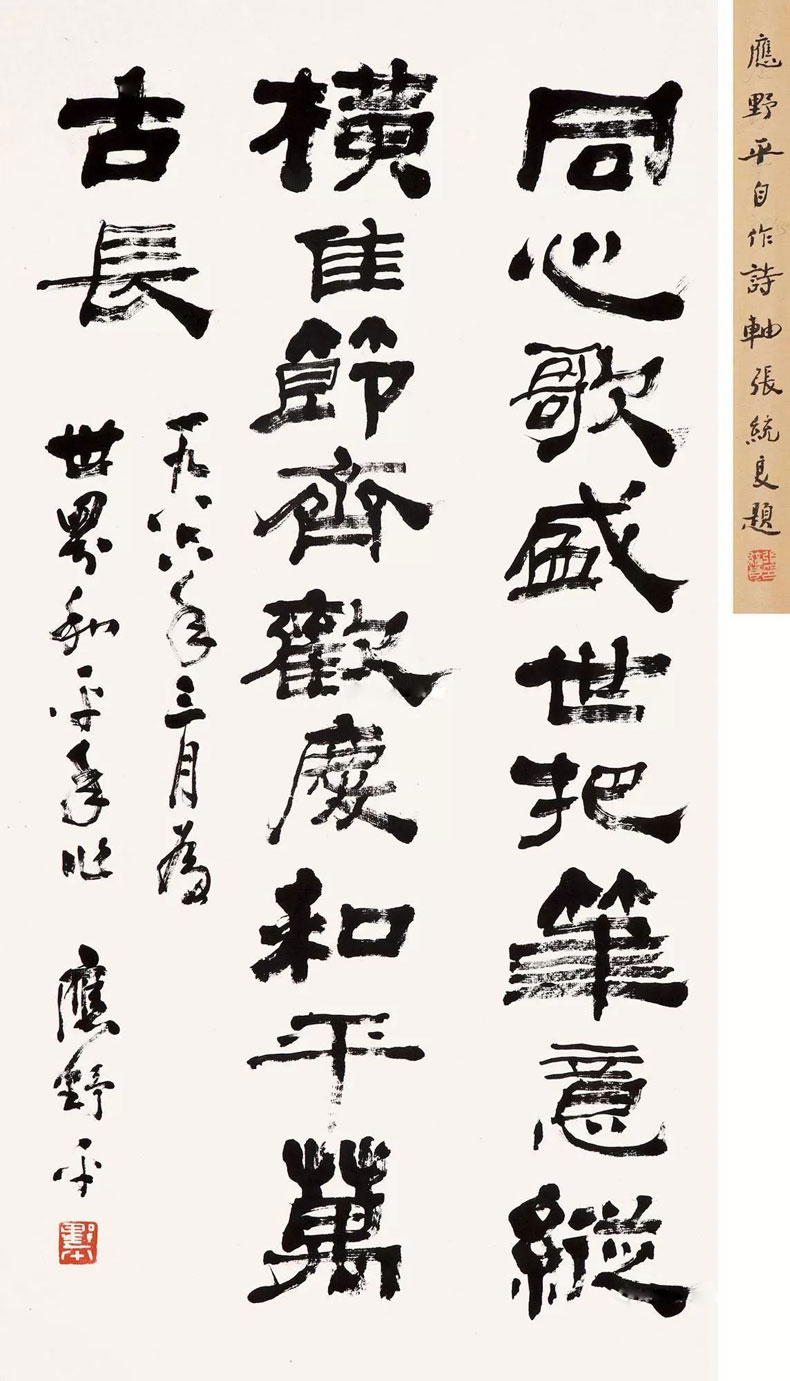 應野平自作詩軸張統良題
同心歌盛世把筆意縱
橫佳節齊歡慶和平萬
古長
一九八六年三月為
世界和平年作
應野平